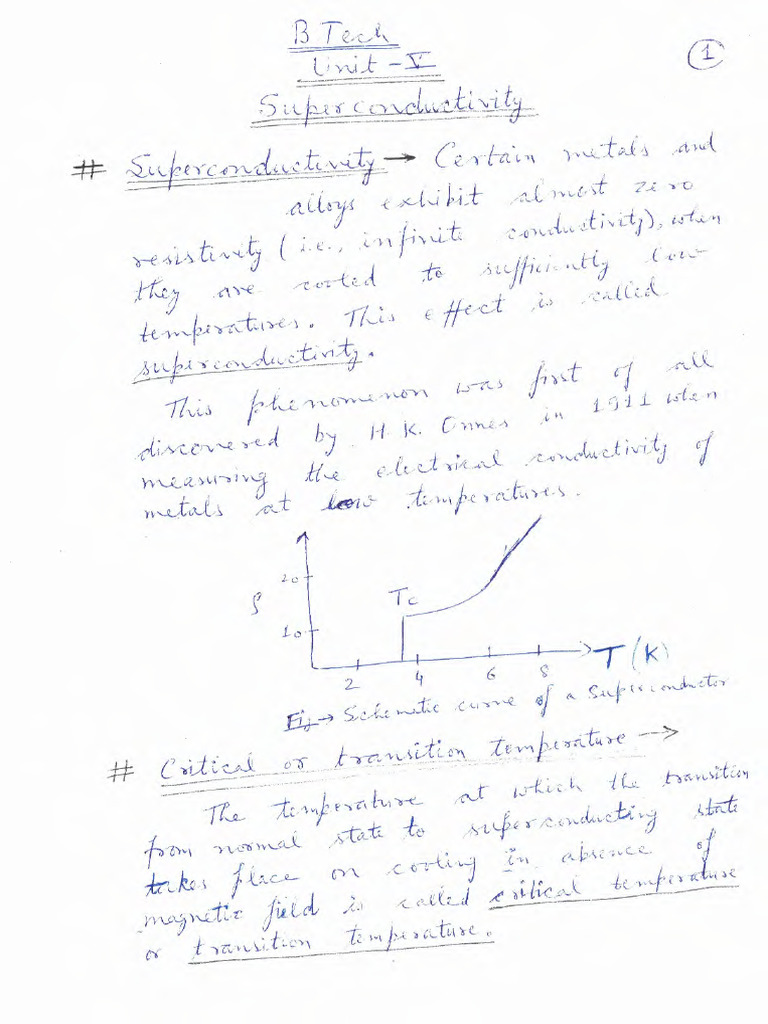 B Tech
1
Unit - V
Superconductivity
# Superconductivity → Certain metals and
alloys exhibit almost zero
resistivity (i.e., infinite conductivity), when
they are cooled to sufficiently low
temperatures. This effect is called
superconductivity.
This phenomenon was first of all
discovered by H. K. Onnes in 1911 when
measuring the electrical conductivity of
metals at low temperatures.
20
ρ
Tc
10
T (K)
2 4 6 8
Fig → Schematic curve of a Superconductor
# Critical or transition temperature →
The temperature at which the transition
from normal state to superconducting state
takes place on cooling in absence of
magnetic field is called critical temperature
or transition temperature.